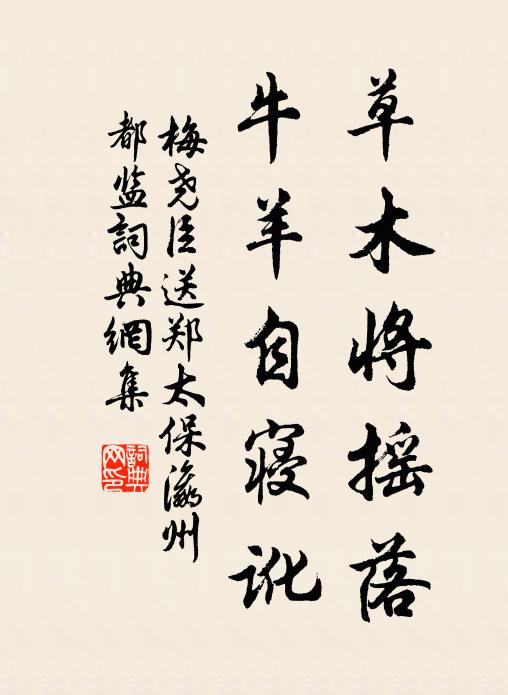 草木将摇落
牛羊自寝讹
梅尧臣送郑太保瀛州
都监詞典網集
詞典
网印